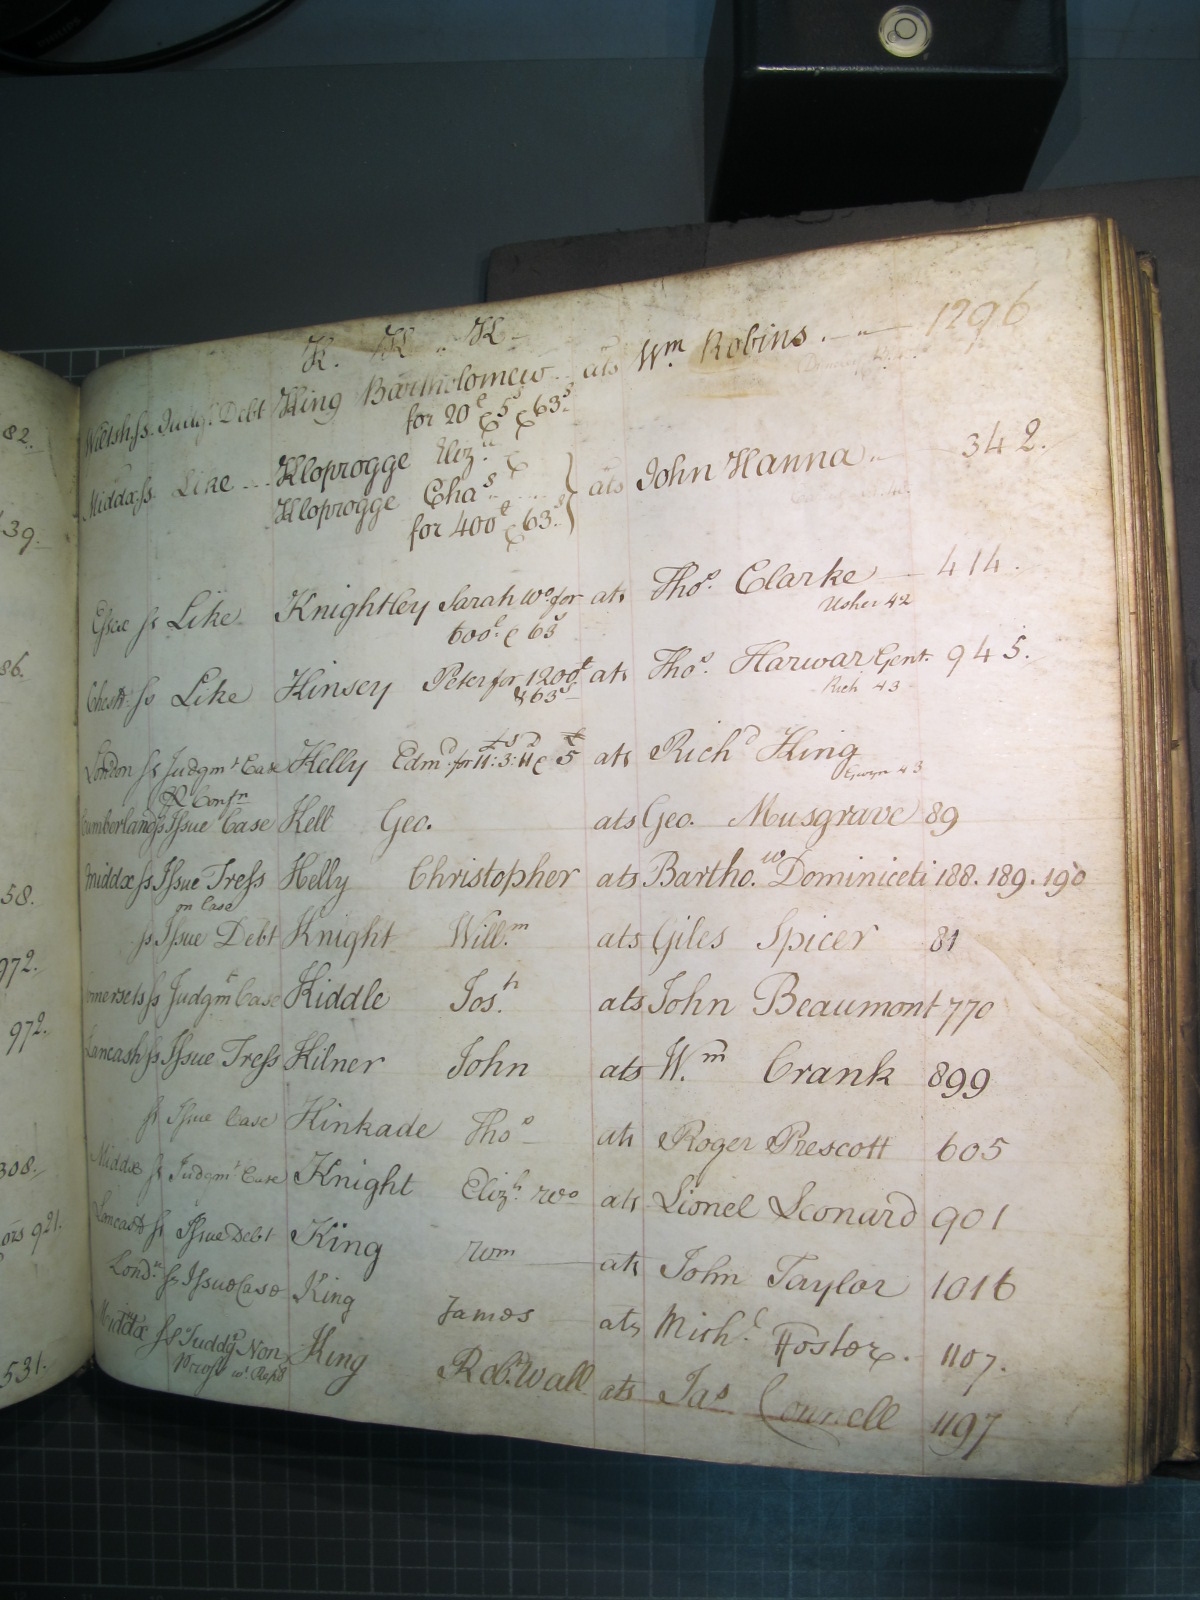 K. K. K
Wiltsh ss. Judgt. Debt King Bartholomew ats Wm. Robins 1296
for 20£ & 5s & 63s
Middx ss. Like Kloprogge Eliz. &
Kloprogge Chas ats John Hanna 342.
for 400£ & 63s
Essex ss Like Knightley Sarah Wo. for ats Thos. Clarke 414.
600£ & 63s Usher 42
Chestr ss Like Kinsey Peter for 1200£ ats Thos. Harwar Gent. 945.
& 63s Rich 43
London ss Judgmt Case Kelly Edmd. for 11:3:11 & 5 ats Richd King
43
Cumberland ss Issue Case Kell Geo. ats Geo. Musgrave 89
Middx ss Issue Tress Kelly Christopher ats Bartho.w Dominiceti 188. 189. 190
on Case
ss Issue Debt Knight Will.m ats Giles Spicer 81
omersets ss Judgmt Case Kiddle Jos.h ats John Beaumont 770
Lancash ss Issue Tress Kilner John ats W.m Crank 899
ss Issue Case Kinkade Thos ats Roger Prescott 605
Middx ss Judgmt Case Knight Eliz.h Wo ats Lionel Leonard 901
Lancast ss Issue Debt King Wm ats John Taylor 1016
Lond.n ss Issue Case King James ats Mich.l Foster. 1107.
Middx ss Juddgt Non King Rob. Wall ats Jas Connell 1197
Pross
82.
39.
86.
58.
972.
972.
308.
921.
531.